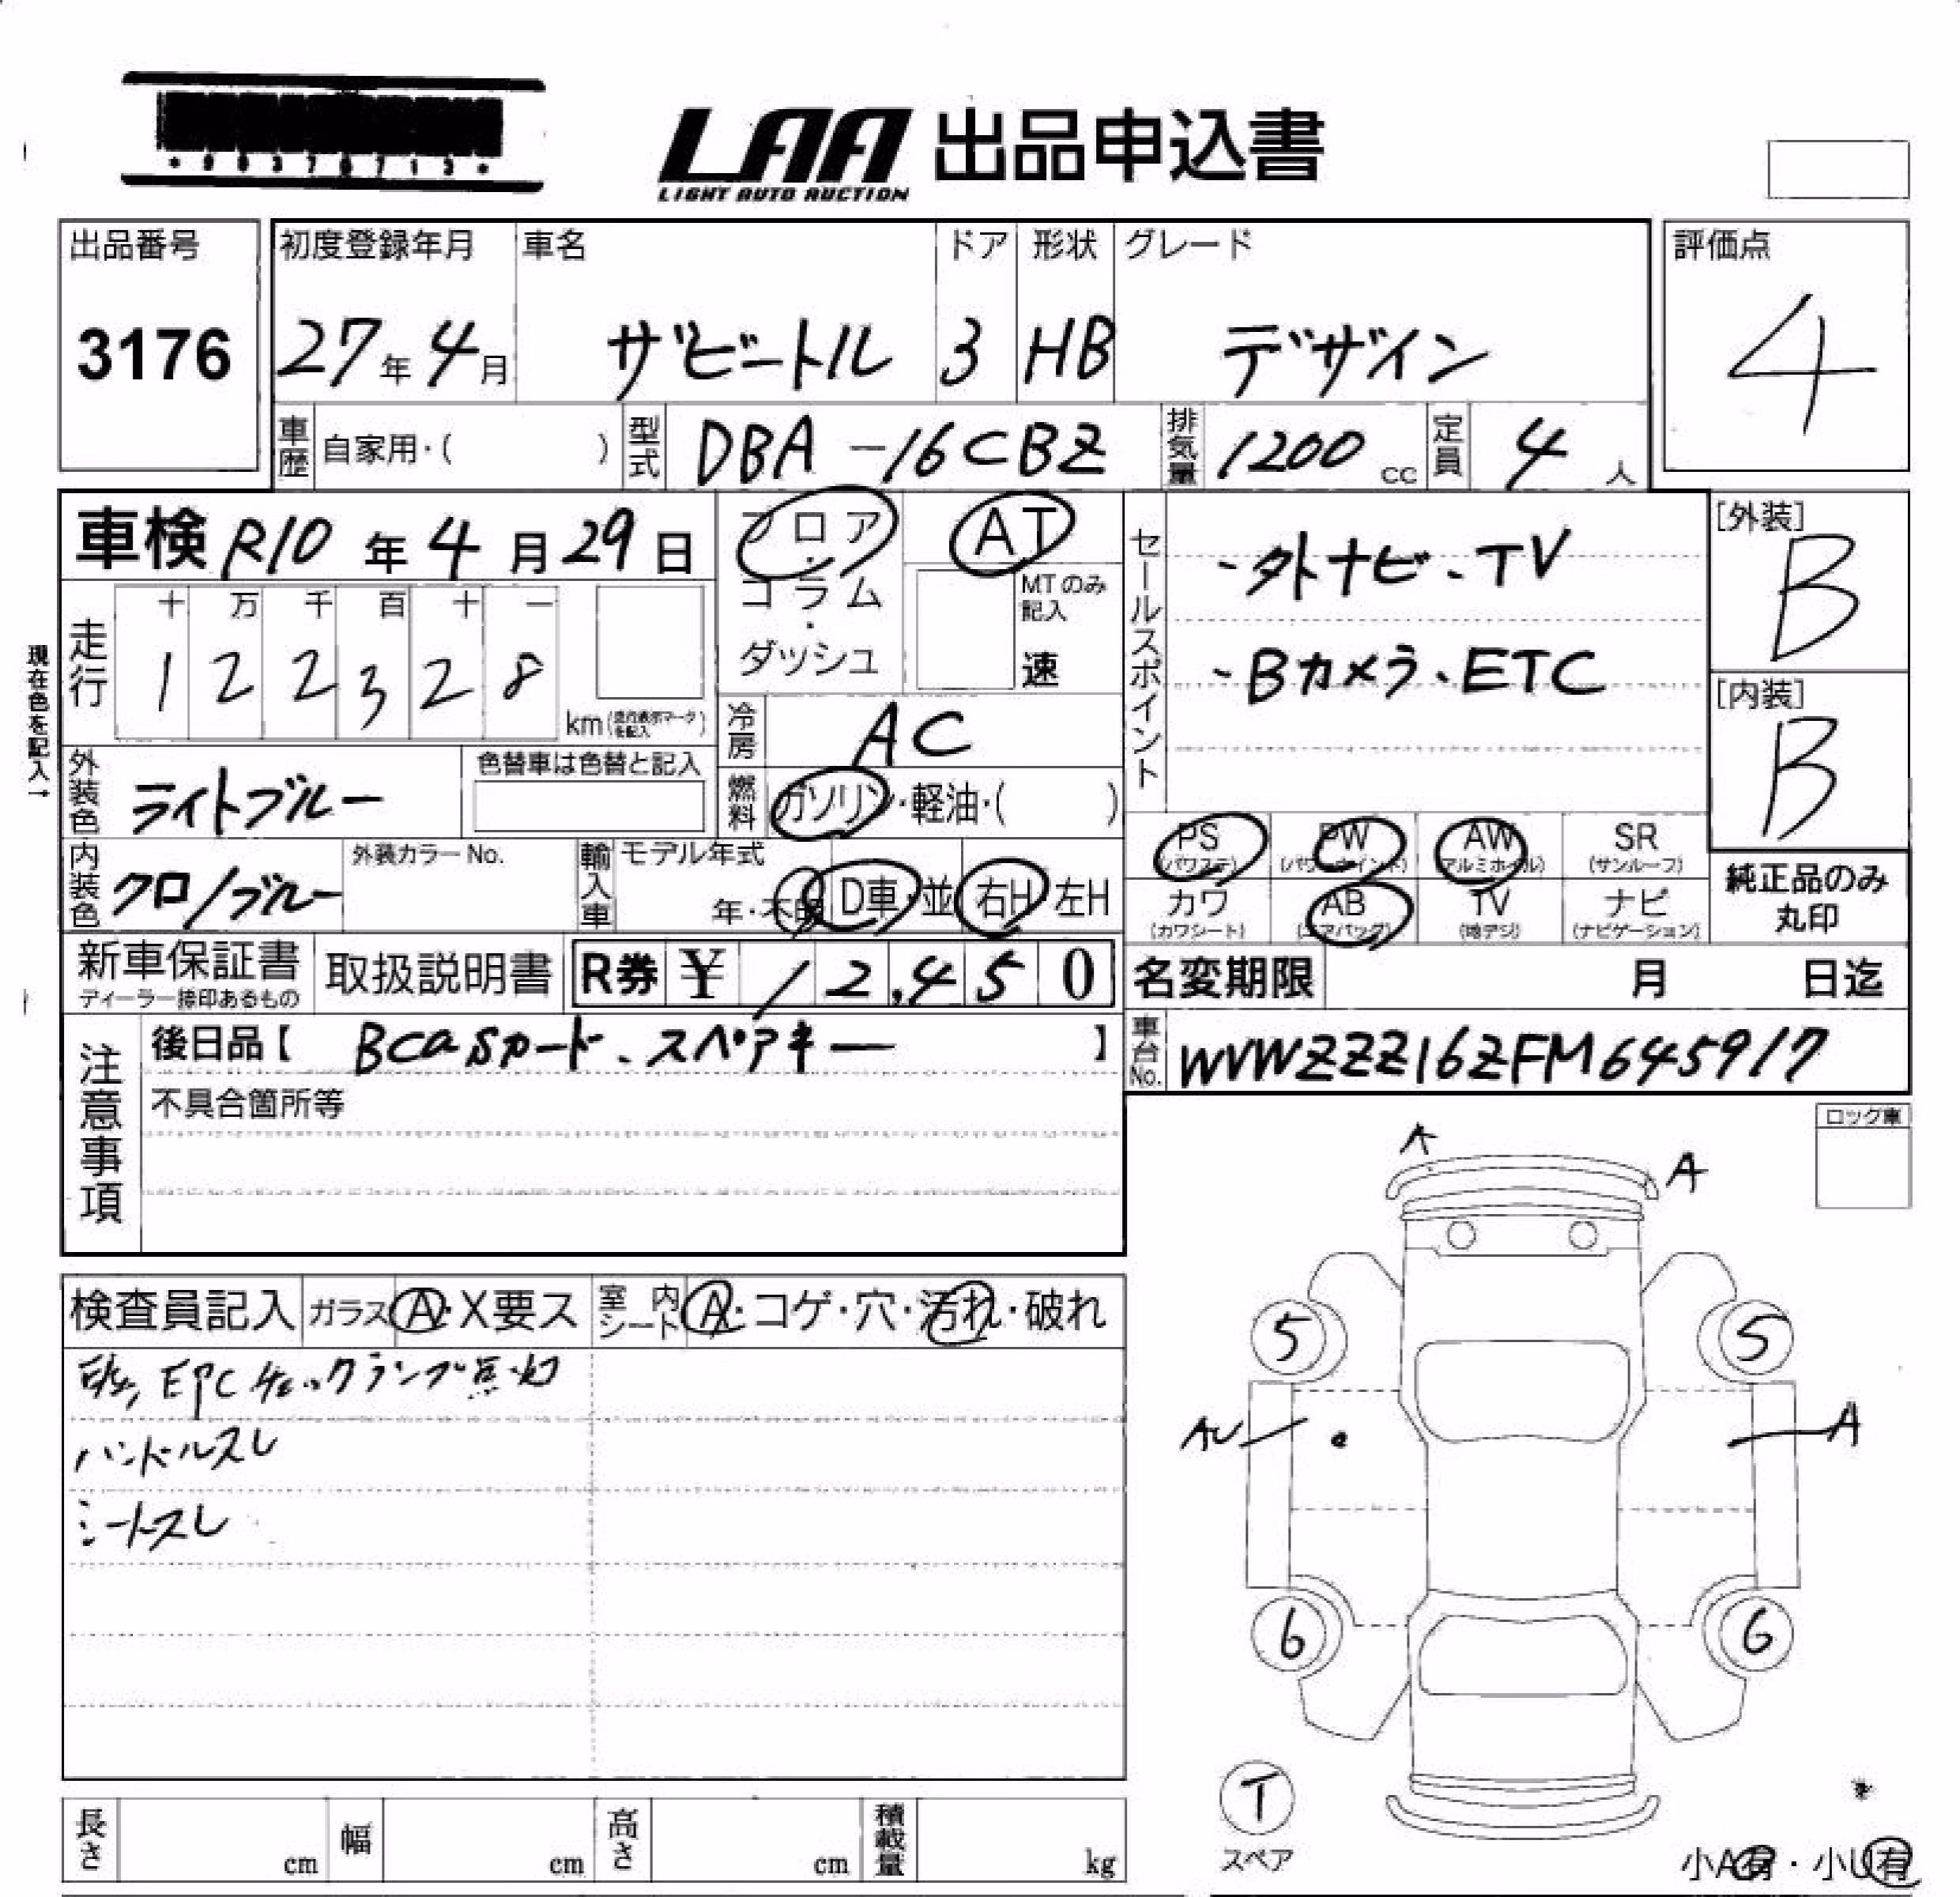 LAA 出品申込書
LIGHT AUTO AUCTION
出品番号 初度登録年月 車名 ドア 形状 グレード 評価点
3176 27年4月 ザビートル 3 HB デザイン 4
車歴 自家用・( ) 型式 DBA-16CBZ 排気量 1200 cc 定員 4人
車検 R10年4月29日
フロア・コラム・ダッシュ
AT
MTのみ記入
速
セールスポイント
・外ナビ、TV
・Bカメラ、ETC
[外装]
B
[内装]
B
現在色を記入→
走行
十 万 千 百 十 一
1 2 2 3 2 8
km
冷房 AC
外装色 ライトブルー
色替車は色替と記入
燃料 ガソリン・軽油・( )
PS (パワステ) PW AW (アルミホイル) SR (サンルーフ)
カワ (カワシート) AB (エアバッグ) TV (地デジ) ナビ (ナビゲーション)
純正品のみ
丸印
内装色 クロ/ブルー
外装カラーNo.
輸入車 モデル年式
年・不明 D車・並 右H 左H
新車保証書
ディーラー捺印あるもの
取扱説明書
R券 ¥ 12,450
名変期限 月 日迄
注意事項
後日品【 Bcasカード、スペアキー 】
車台No. WVWZZZ16ZFM645917
不具合箇所等
ロック車
A
A
検査員記入 ガラス A・X要ス 室内シート A・コゲ・穴・汚れ・破れ
EPCチェックランプ点灯
ハンドルスレ
シートスレ
5 5
AU A
6 6
T
スペア
小A有・小U有
長さ cm 幅 cm 高さ cm 積載量 kg